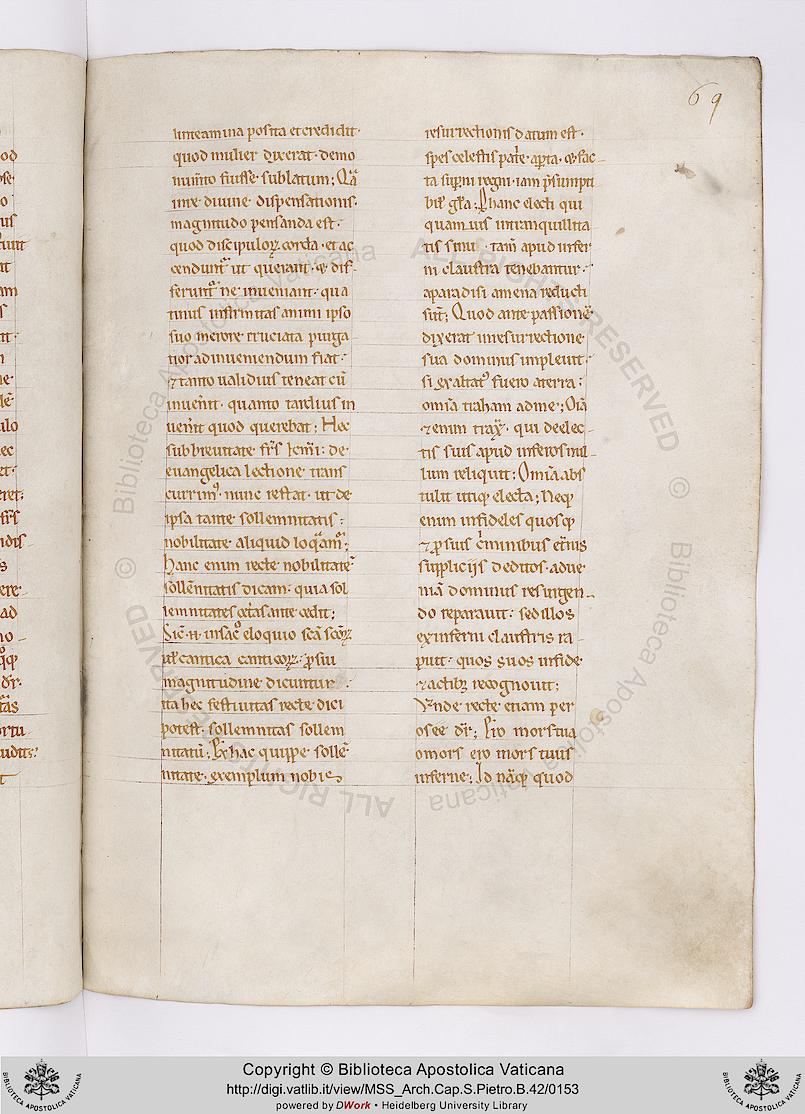 69
linteamina posita et credidit·
quod mulier dixerat· demo
num̄to fuisse sublatum; Q̄a
inre diuine dispensationis·
magnitudo pensanda est·
quod discipuloꝝ corda· et ac
cendunt᷑ ut querant· & dif-
ferunt᷑ ne inueniant· qua
tinus infirmitas animi ipso
suo merore cruciata purga
tior ad inueniendum fiat·
& tanto ualidius teneat cū
inuenit· quanto tardius in
uenit quod querebat; Hec
sub breuitate fr̄s km̄i· de
euangelica lectione trans
currimꝰ· nunc restat· ut de
ipsa tante sollemnitatis·
nobilitate aliquid loq̄am᷑;
Hanc enim recte nobilitatē
sollēnitatis dicam· quia sol
lemnitates cet̄as ante cedit;
Sic̄ n̄ in sac̊ eloquio sc̄a sc̄oꝝ
ut̄ cantica canticoꝝ· ꝓ sui
magnitudine dicuntur
ita hec festiuitas recte dici
potest· sollemnitas sollem
nitatū; Ex hac quippe sollē
nitate· exemplum nobis
resurrectionis datum est·
spes celestis pat̄e· aꝑta· & fac-
ta suꝑni regni· iam p̄sumpti
bił gła; Ꝑ hanc electi qui
quamuis in tranquillita
tis sinu· tam̄ apud infer
ni claustra tenebantur·
a paradisi amena reducti
sunt; Quod ante passionē
dixerat in resurrectione
sua dominus impleuit·
si exaltatꝰ fuero a terra·
om̄ia traham ad me; Om̄ia
& enim trax̄· qui de elec-
tis suis apud inferos nul-
lum reliquit; Om̄ia abs
tulit utiqꝫ electa; Neqꝫ
enim infideles quosqꝫ
& ꝓ suis c̄minibus et̄nis
supplicijs deditos· ad ue-
niā dominus resurgen-
do reparauit· sed illos
ex inferni claustris ra
puit· quos suos in fide
& actibꝫ recognouit;
Vnde recte etiam per
osee dr̄; Ero mors tua
o mors ero mors tuus
inferne; Id nāqꝫ quod
Copyright © Biblioteca Apostolica Vaticana
http://digi.vatlib.it/view/MSS_Arch.Cap.S.Pietro.B.42/0153
powered by DWork • Heidelberg University Library